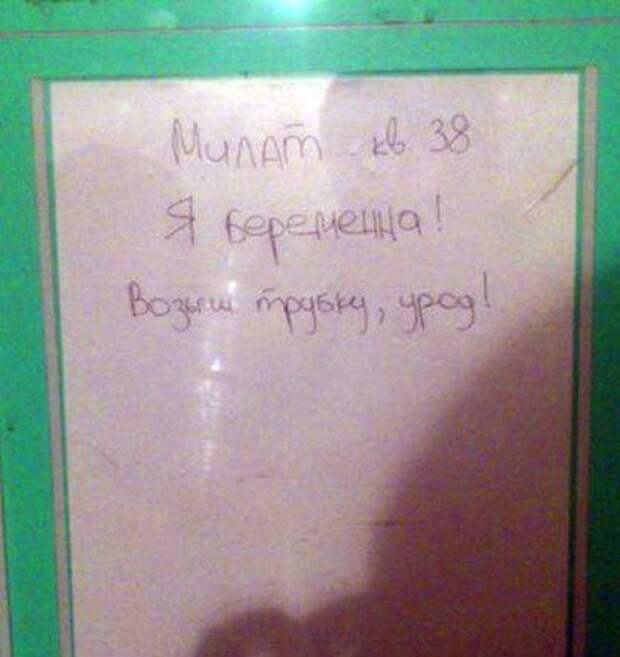 Милат кв 38
Я беременна!
Возьми трубку, урод!